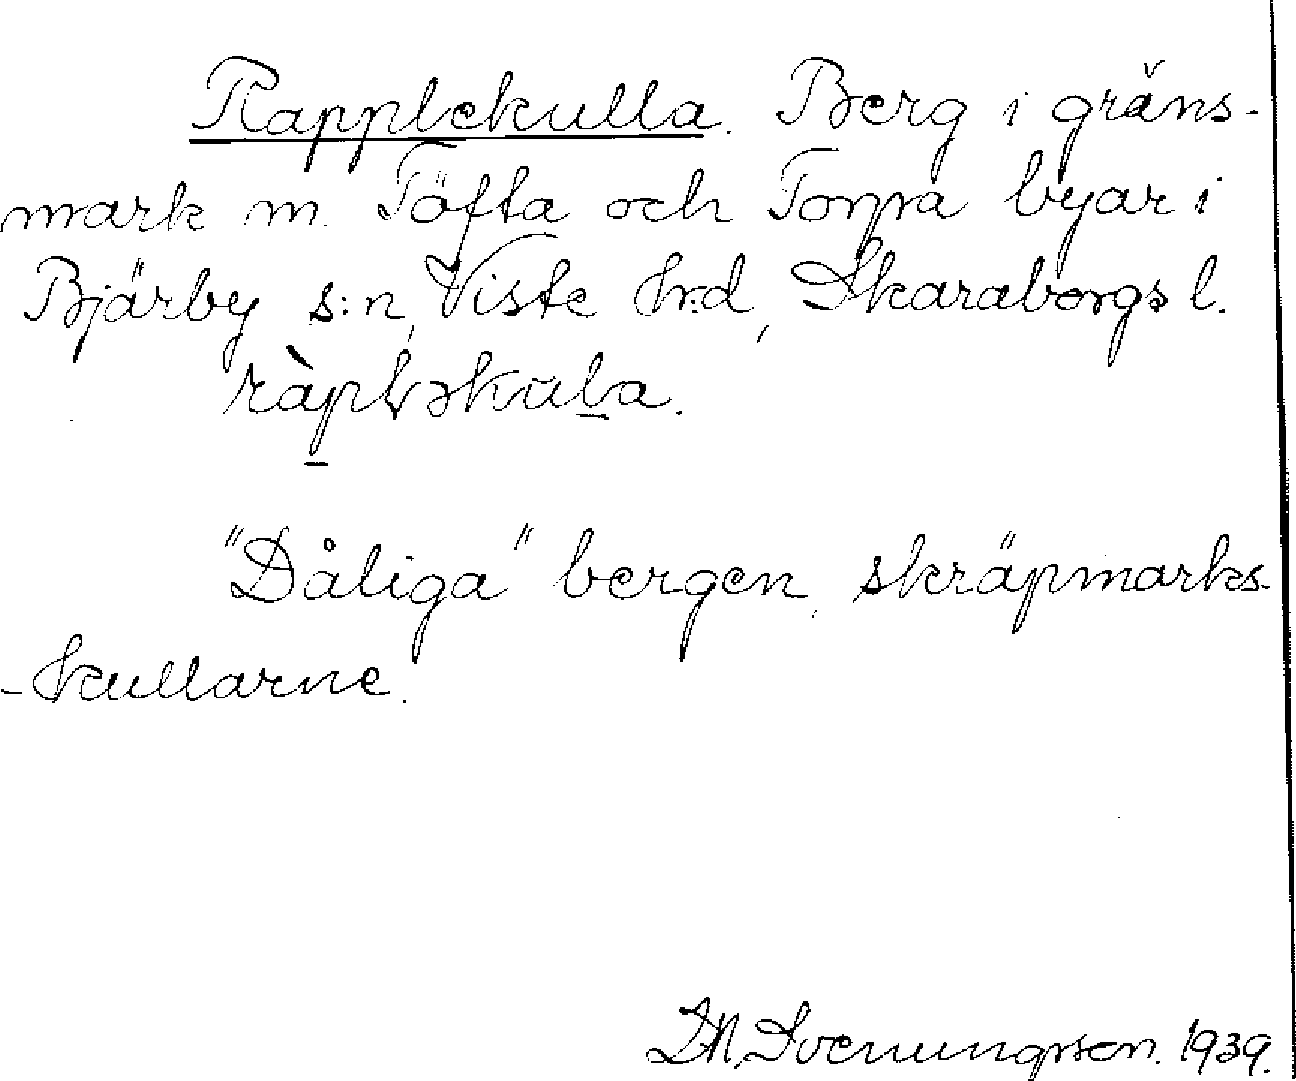 Rapplekulla. Berg i gräns-
mark m. Töfta och Torpa byar i
Bjärby s:n, Viste hrd, Skaraborgs l.
ràpləkula.
"Dåliga" bergen, skräpmarks-
-kullarne.
Svenungsson. 1939.